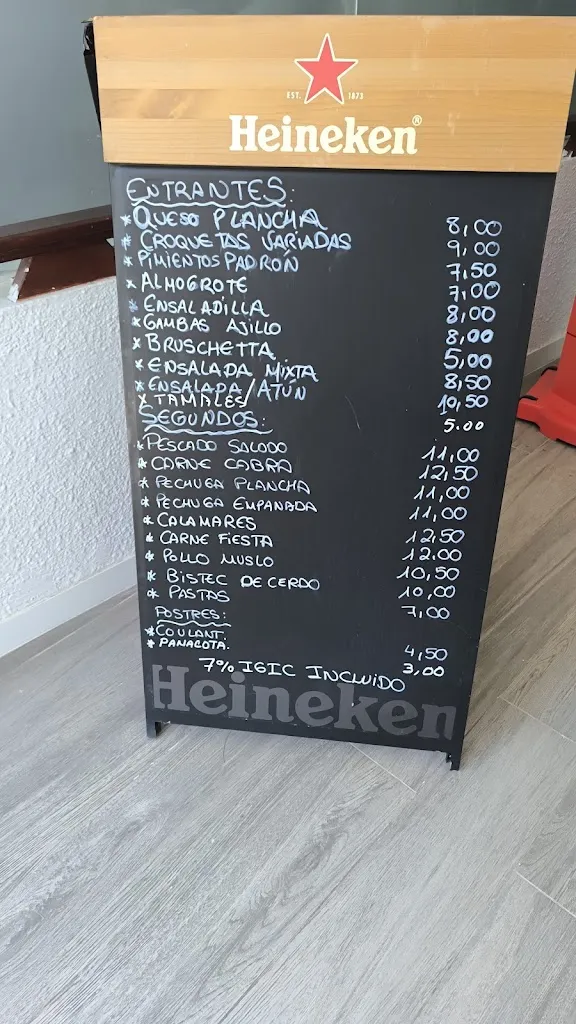 EST. 1873
Heineken®
ENTRANTES:
* QUESO PLANCHA 8,00
* CROQUETAS VARIADAS 9,00
* PIMIENTOS PADRÓN 7,50
* ALMOGROTE 7,00
* ENSALADILLA 8,00
* GAMBAS AJILLO 8,00
* BRUSCHETTA 5,00
* ENSALADA MIXTA 8,50
* ENSALADA/ATÚN 10,50
X TAMALES 5.00
SEGUNDOS:
* PESCADO SALADO 11,00
* CARNE CABRA 12,50
* PECHUGA PLANCHA 11,00
* PECHUGA EMPANADA 11,00
* CALAMARES 12,50
* CARNE FIESTA 12,00
* POLLO MUSLO 10,50
* BISTEC DE CERDO 10,00
* PASTAS 7,00
POSTRES:
* COULANT. 4,50
* PANACOTA. 3,00
7% IGIC INCLUIDO
Heineken